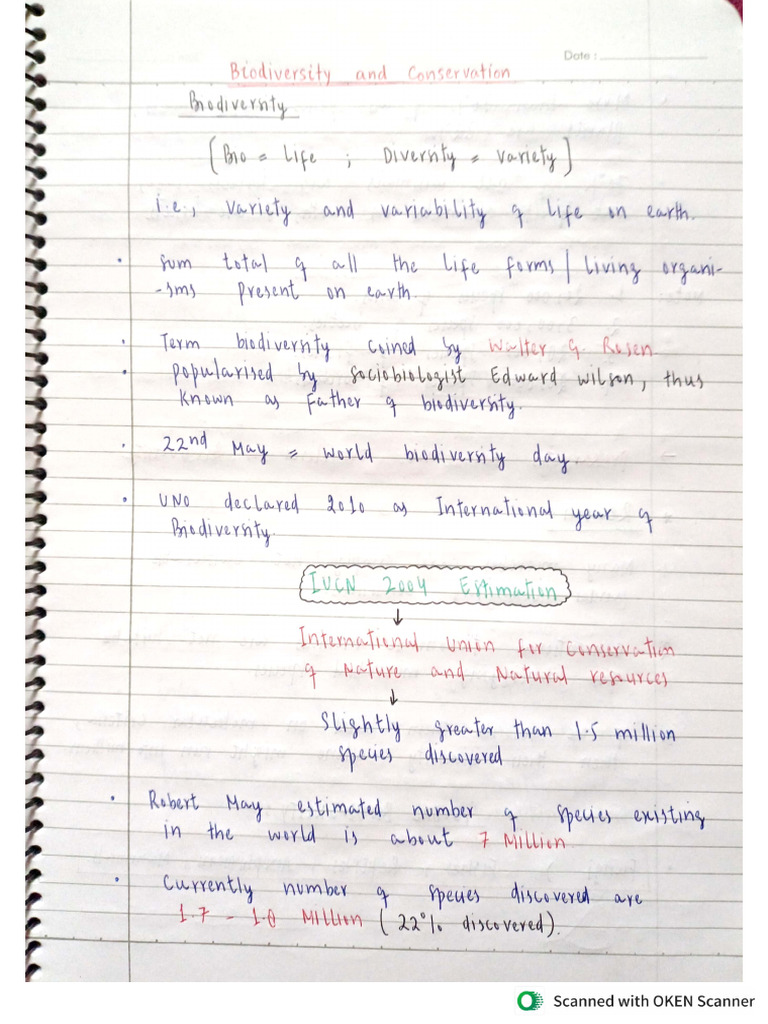 Date :
Biodiversity and Conservation
Biodiversity
[Bio = Life ; Diversity = Variety]
i.e., variety and variability of life on earth.
• Sum total of all the life forms / living organi-
-sms present on earth.
• Term biodiversity coined by Walter G. Rosen
• Popularised by sociobiologist Edward wilson, thus
known as Father of biodiversity.
• 22nd May = world biodiversity day.
• UNO declared 2010 as International year of
Biodiversity.
IUCN 2004 Estimation
↓
International Union for Conservation
of Nature and Natural resources
↓
Slightly greater than 1.5 million
species discovered
• Robert May estimated number of species existing
in the world is about 7 Million
• Currently number of species discovered are
1.7 - 1.8 Million (22% discovered).
Scanned with OKEN Scanner